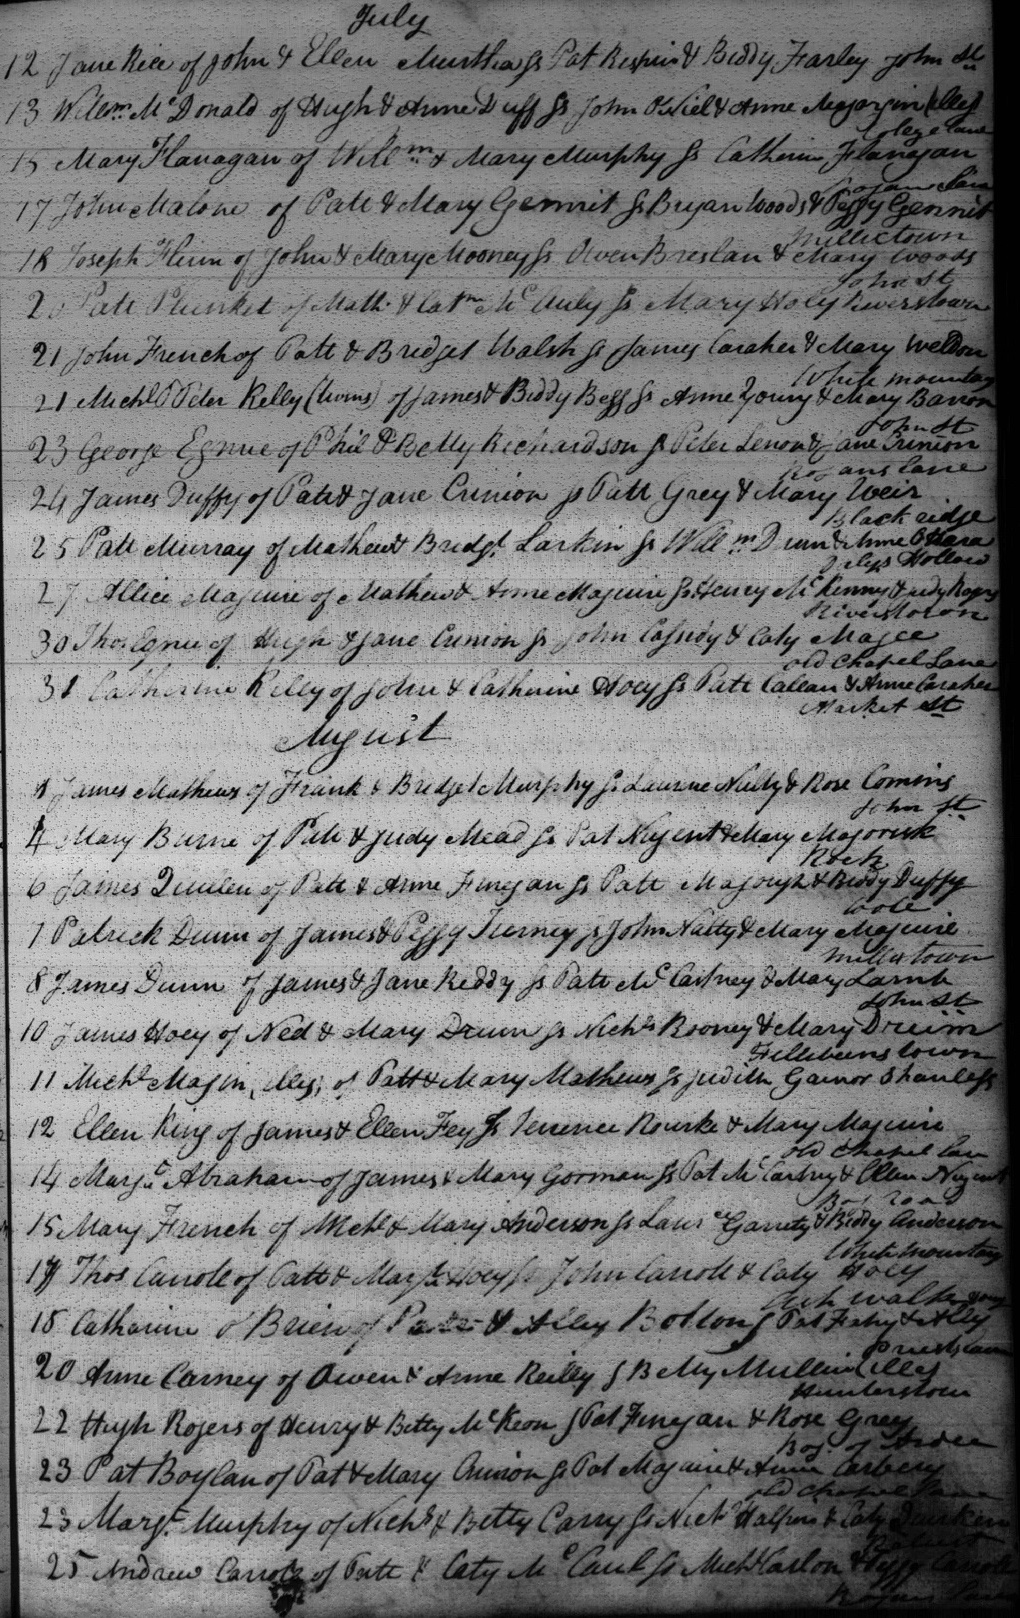 July
12 Jane Rice of John & Ellen Murtha Ss Pat & Biddy Farley John St
13 Willm. McDonald of Hugh & Anne Duff Ss John O'Niel & Anne
Colege lane
15 Mary Flanagan of Willm & Mary Murphy Ss Catherin Flanagan
Rogans lane
17 John Malone of Patt & Mary Gernit Ss Bryan Woods & Peggy Gernit
Millictown
18 Joseph Flinn of John & Mary Mooney Ss Owen Breslan & Mary Woods
John St
20 Patt Plunket of Math. & Catn McAuly Ss Mary Holy Riverstown
21 John French of Patt & Bridget Walsh Ss James Caraher & Mary Weldon
White mountay
21 Michl & Peter Kelly (twins) of James & Biddy Begg Ss Anne Young & Mary Barron
John St
23 George Egnue of Phil & Betty Richardson Ss Peter Lenon & Jane Crinion
Rogans lane
24 James Duffy of Patt & Jane Crinion Ss Patt Grey & Mary Weir
Black ridge
25 Patt Murray of Mathew & Bridgt Larkin Ss Willm Drum & Anne OHara
Hollow
27 Allice Maguire of Mathew & Anne Maguire Ss Henry McKenny & Judy Rogers
Riverstown
30 Thos Egnue of Hugh & Jane Crinion Ss John Cassidy & Caty Magee
old Chapel Lane
31 Catherine Kelly of John & Catherine Hoey Ss Patt Callan & Anne Caraher
Market St
August
James Mathews of Frank & Bridget Murphy Ss Laurence Nulty & Rose Comins
John St
4 Mary Burne of Patt & Judy Mead Ss Pat Nugent & Mary
Rock
6 James Quilen of Patt & Anne Finegan Ss Patt & Biddy Duffy
7 Patrick Dunn of James & Peggy Tierney Ss John Natty & Mary Maguire
Millictown
8 James Dunn of James & Jane Reddy Ss Patt McCartney & Mary Lamb
John St
10 James Hoey of Ned & Mary Drum Ss Nichs Rooney & Mary Drum
11 Michl Magin of Patt & Mary Mathews Ss Judith Gainor
12 Ellen King of James & Ellen Fey Ss Terrence Rourke & Mary Maguire
old Chapel lan
14 Margt. Abraham of James & Mary Gorman Ss Pat McCartny & Ellen Nugent
Bog road
15 Mary French of Michl & Mary Anderson Ss Laure Garrety & Biddy Anderson
White mountay
17 Thos Carroll of Patt & Margt. Hoey Ss John Carroll & Caty Hoey
18 Catharine O'Brien of Patt & Alley Bolton S Pat Fahy & Ally
20 Anne Carney of Owen & Anne Reilly S Betty Mullin
Hunterstown
22 Hugh Rogers of Henry & Betty McKeon S Pat Finegan & Rose Grey
Bog of Ardee
23 Pat Boylan of Pat & Mary Crinion Ss Pat Maguire & Anne Carbery
old Chapel Lane
23 Margt. Murphy of Nichs & Betty Carry Ss Nichs Halfpin & Caty
25 Andrew Carroll of Patt & Caty McCaul Ss Michl Carlon & Peggy Carroll
Rogans Lane